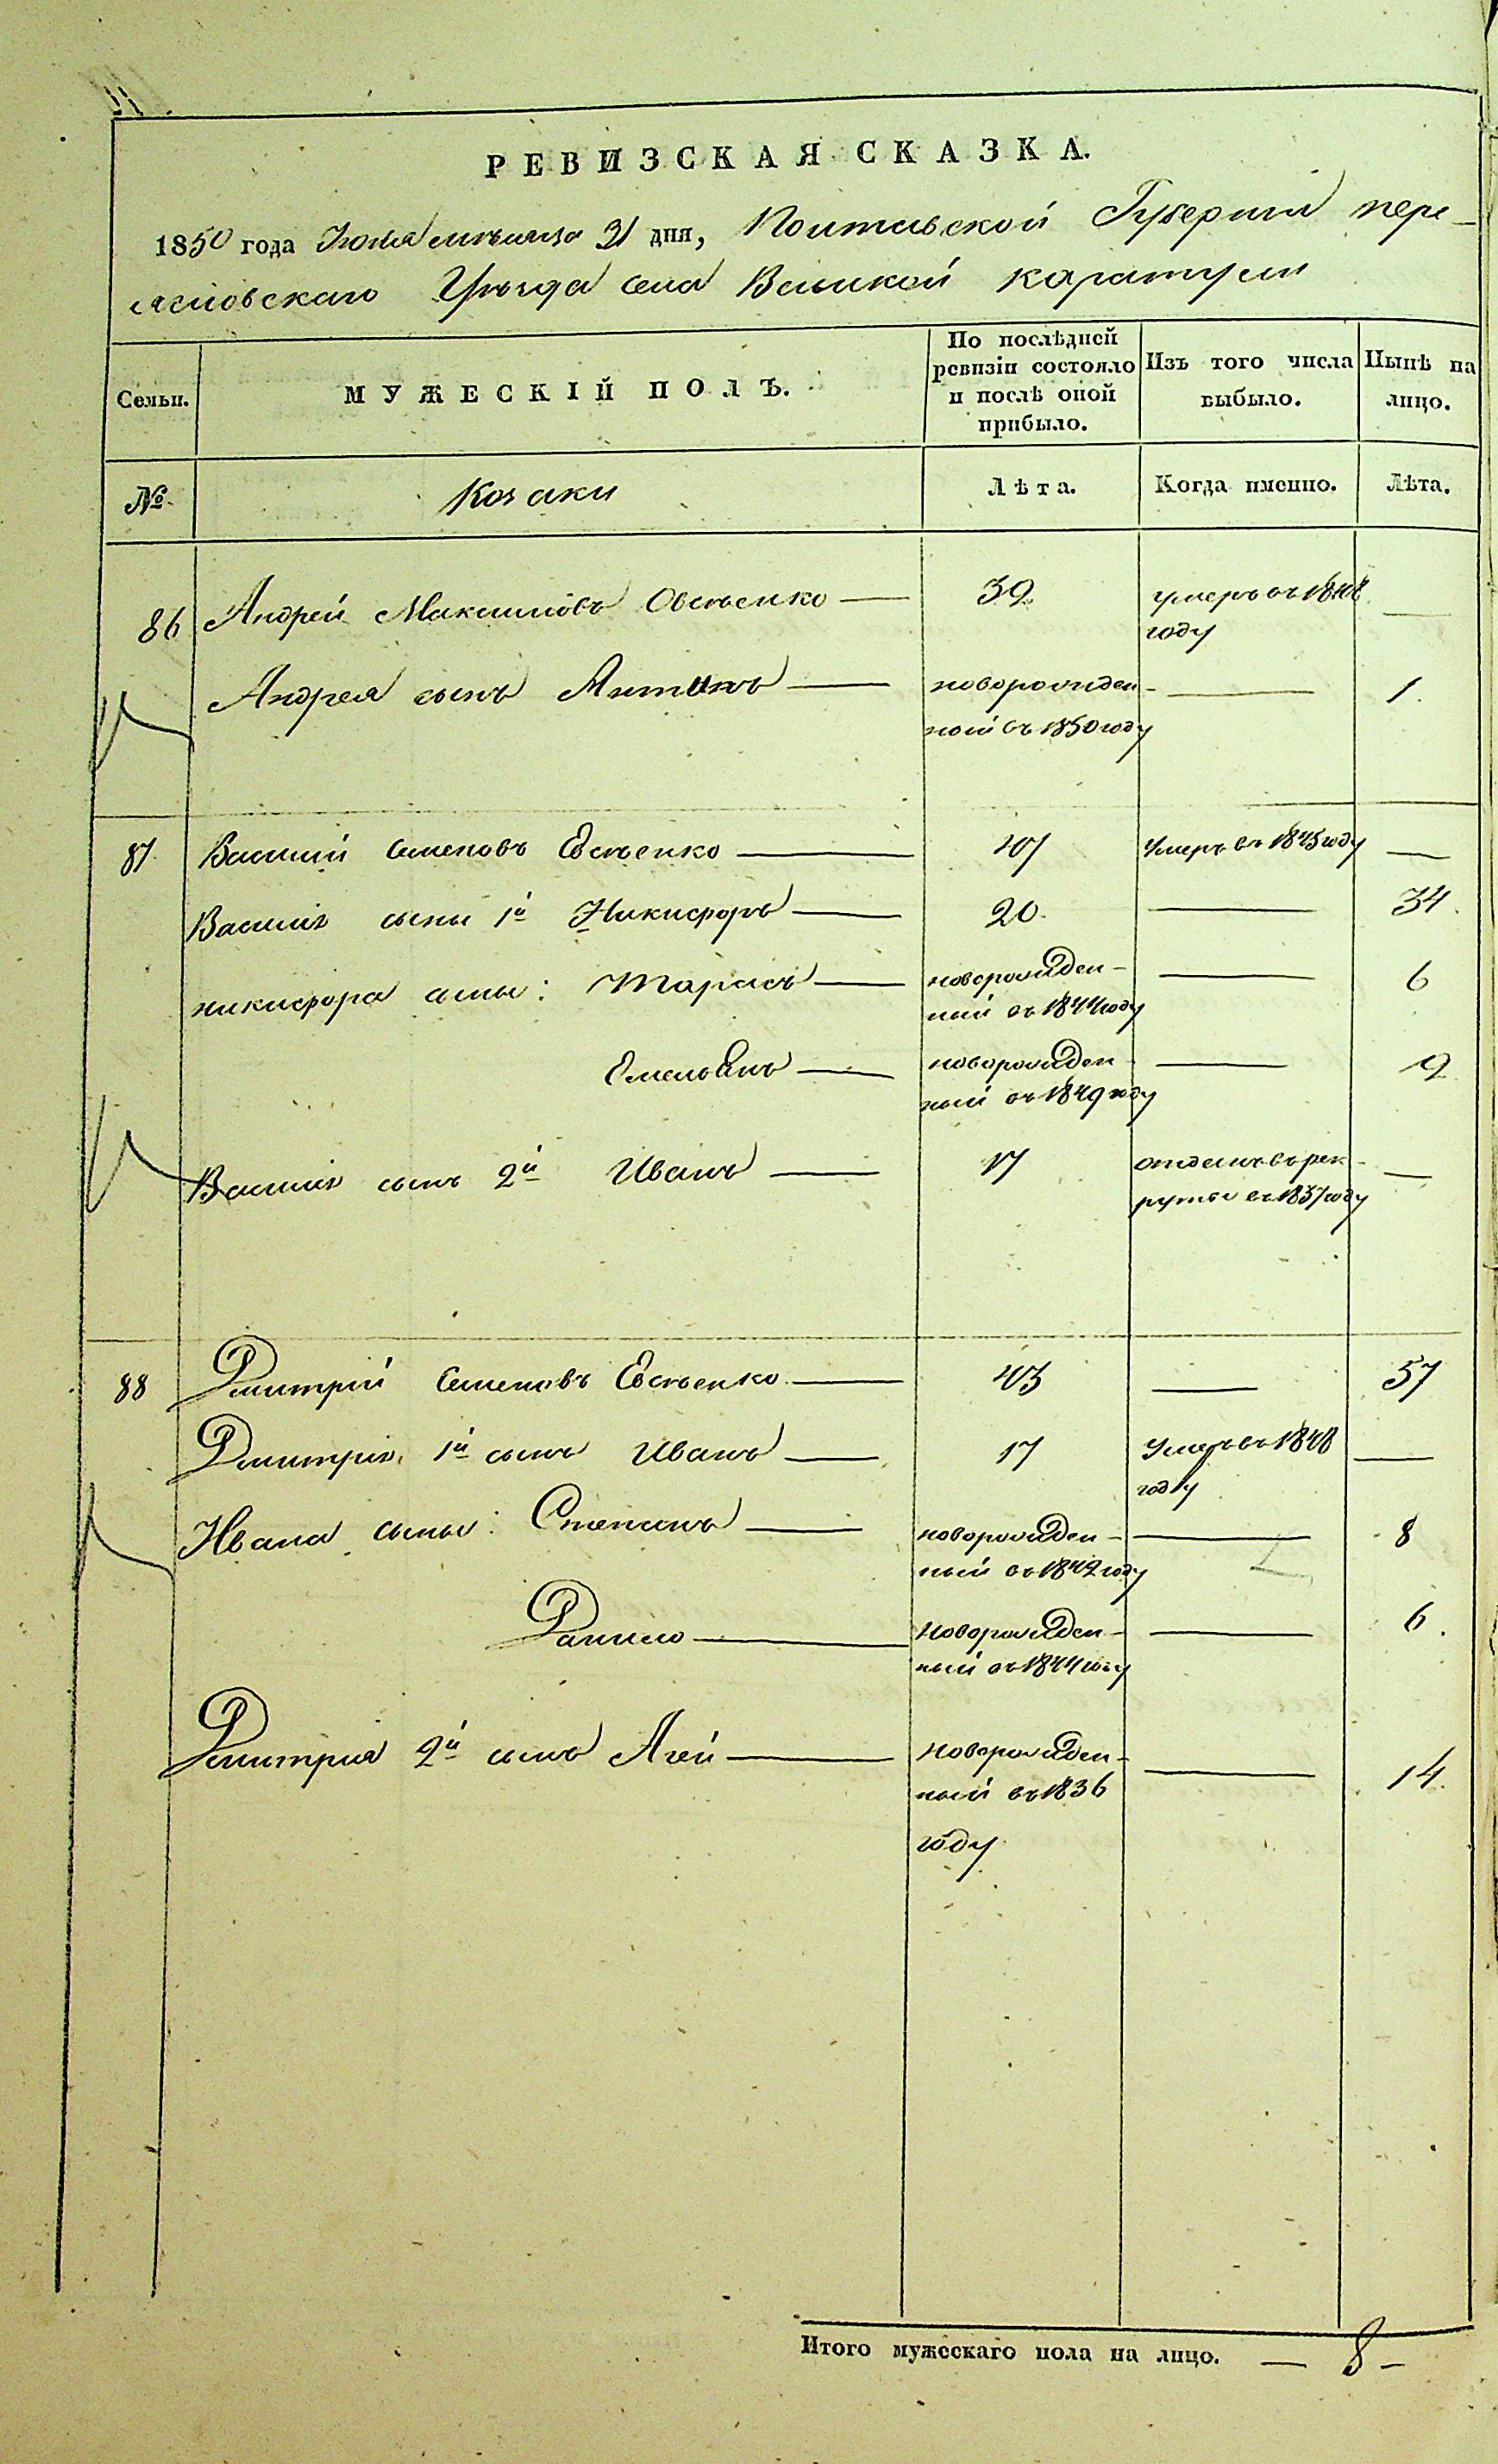 РЕВИЗСКАЯ СКАЗКА.
1850 года Іюня мѣсяца 21 дня, Полтавской Губерніи пере-
яславскаго Уѣзда села Великой каратули
Семьи. МУЖЕСКІЙ ПОЛЪ. По послѣдней ревизіи состояло и послѣ оной прибыло. Изъ того числа выбыло. Нынѣ на лицо.
№ Козаки Лѣта. Когда именно. Лѣта.
86 Андрей Максимовъ Овсѣенко — 39 умеръ въ 1848 году —
Андрея сынъ Антонъ — новорожден- ной въ 1850 году — 1.
87. Василій Семеновъ Евсѣенко — 47 Умеръ въ 1845 году —
Василія сыны 1й Никифоръ — 20. — 34.
никифора сыны: Тарасъ — новорожден- ный въ 1844 году — 6
Емельянъ — новорожден- ный въ 1849 году —
Василія сынъ 2й Иванъ — 17 отданъ въ рек- руты въ 1837 году —
88 Дмитрій Семеновъ Евсѣенко. — 43 — 57
Дмитрія 1й сынъ Иванъ — 17 Умеръ въ 1848 году —
Ивана сыны: Степанъ — новорожден- ный въ 1842 году — 8
Данило — Новорожден- ный въ 1844 году — 6.
Дмитрия 2й сынъ Агей — новорожден- ный въ 1836 году — 14.
Итого мужескаго пола на лицо. — 8 —